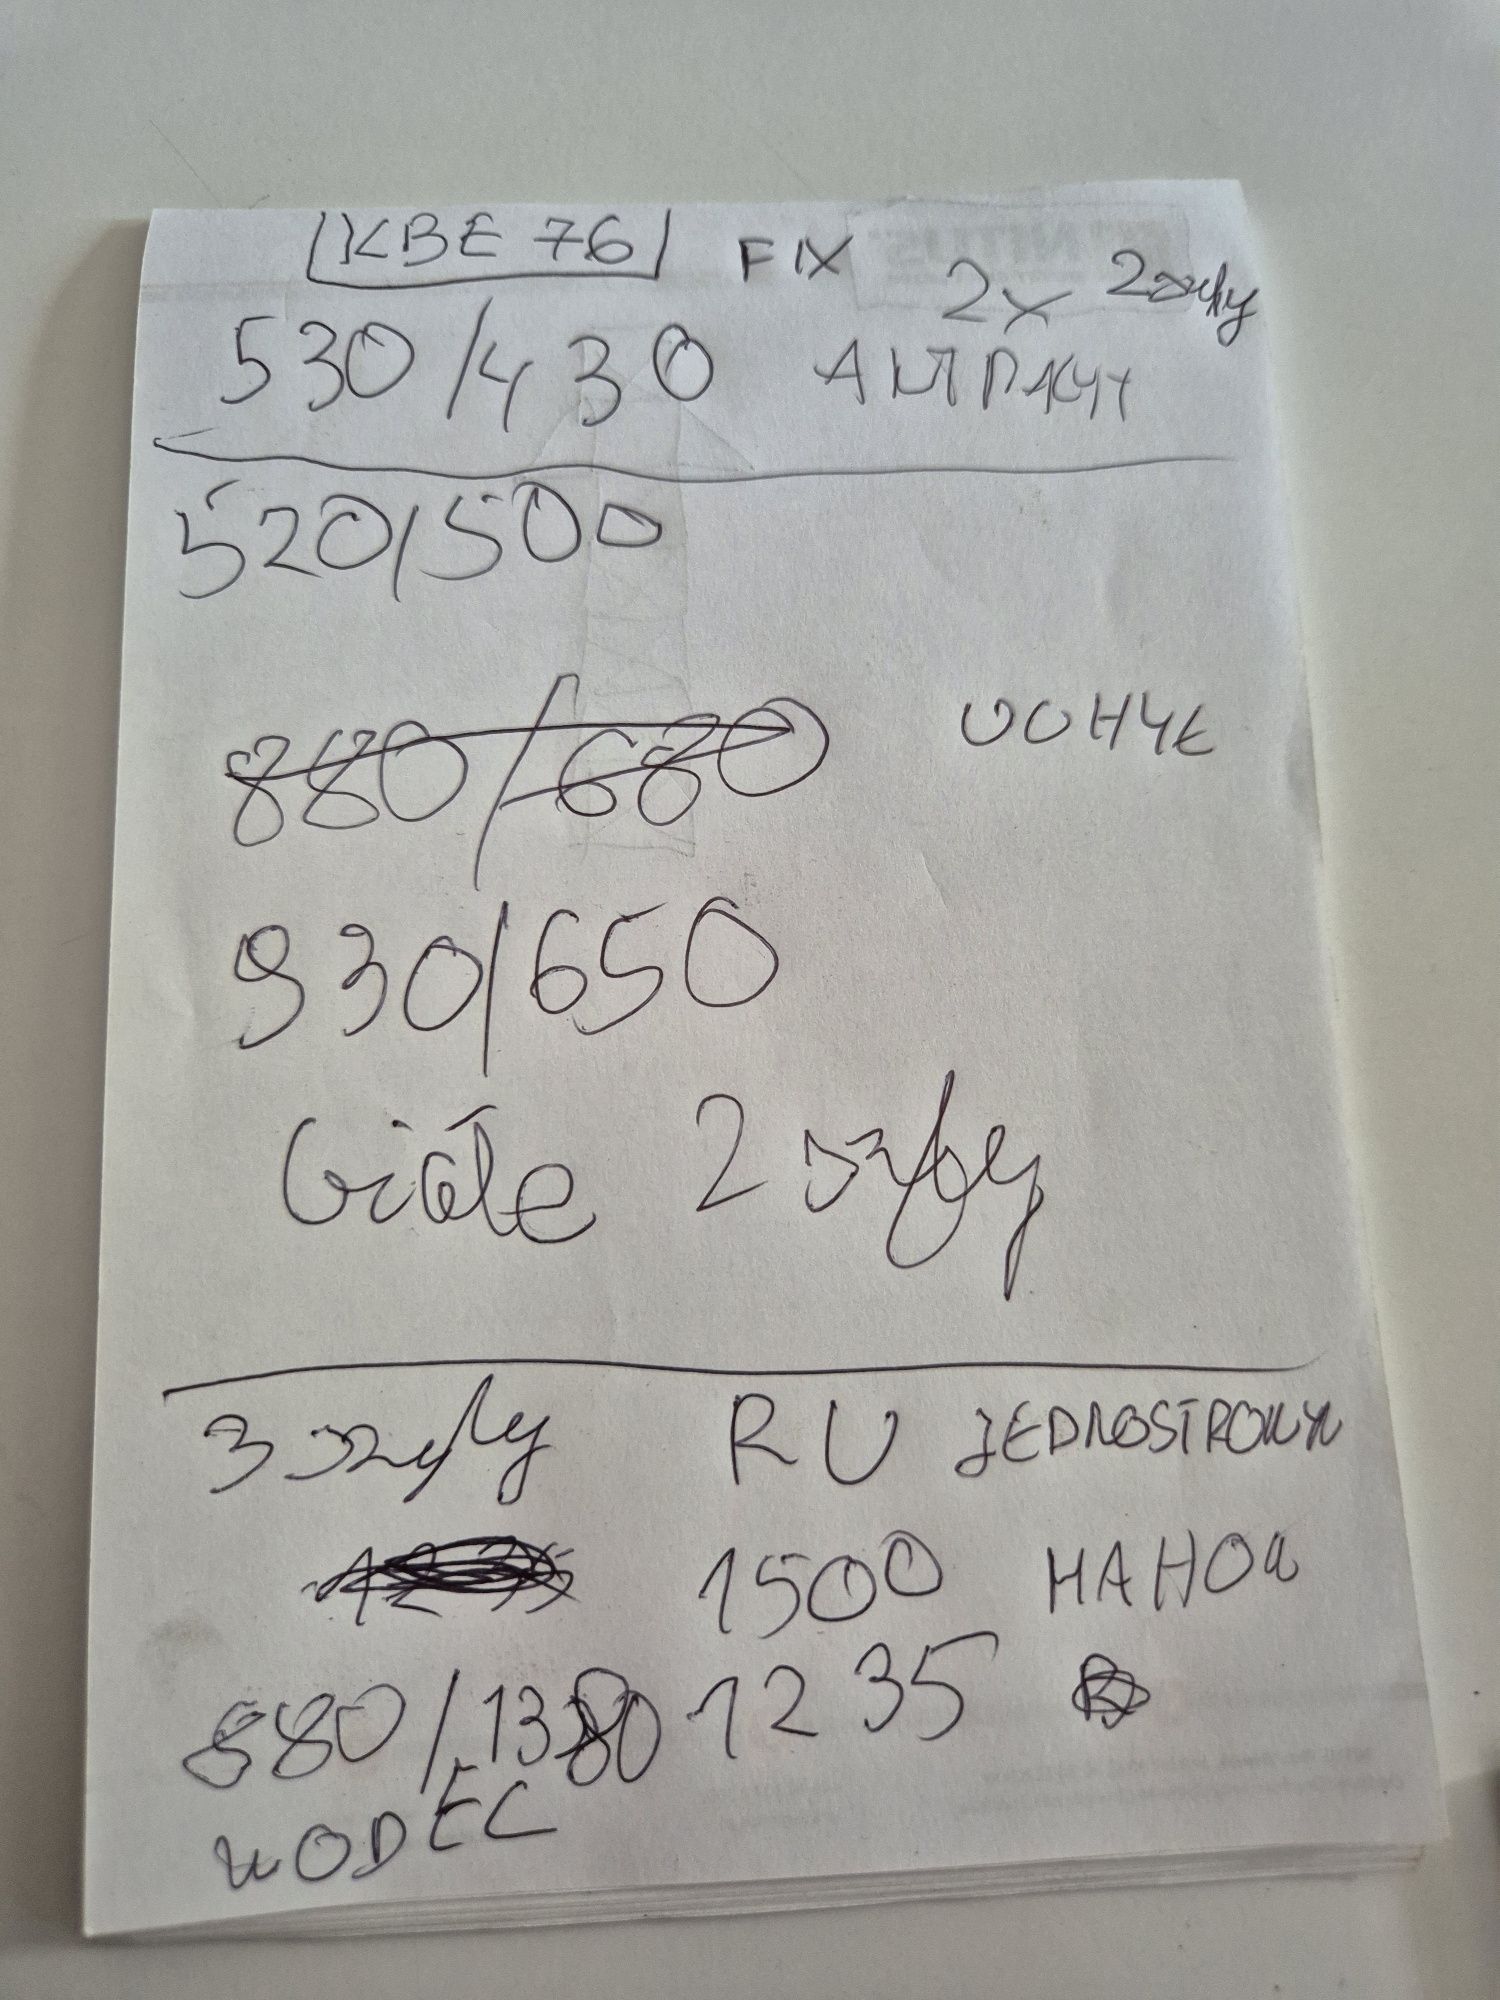 KBE 76 FIX 2x 2 szyby
530/430 ANTRACYT
520/500
880/680 UCHYŁ
930/650
białe 2 szyby
3 szyby RU JEDNOSTRONN
1500 MAHOŃ
880/1380 1235